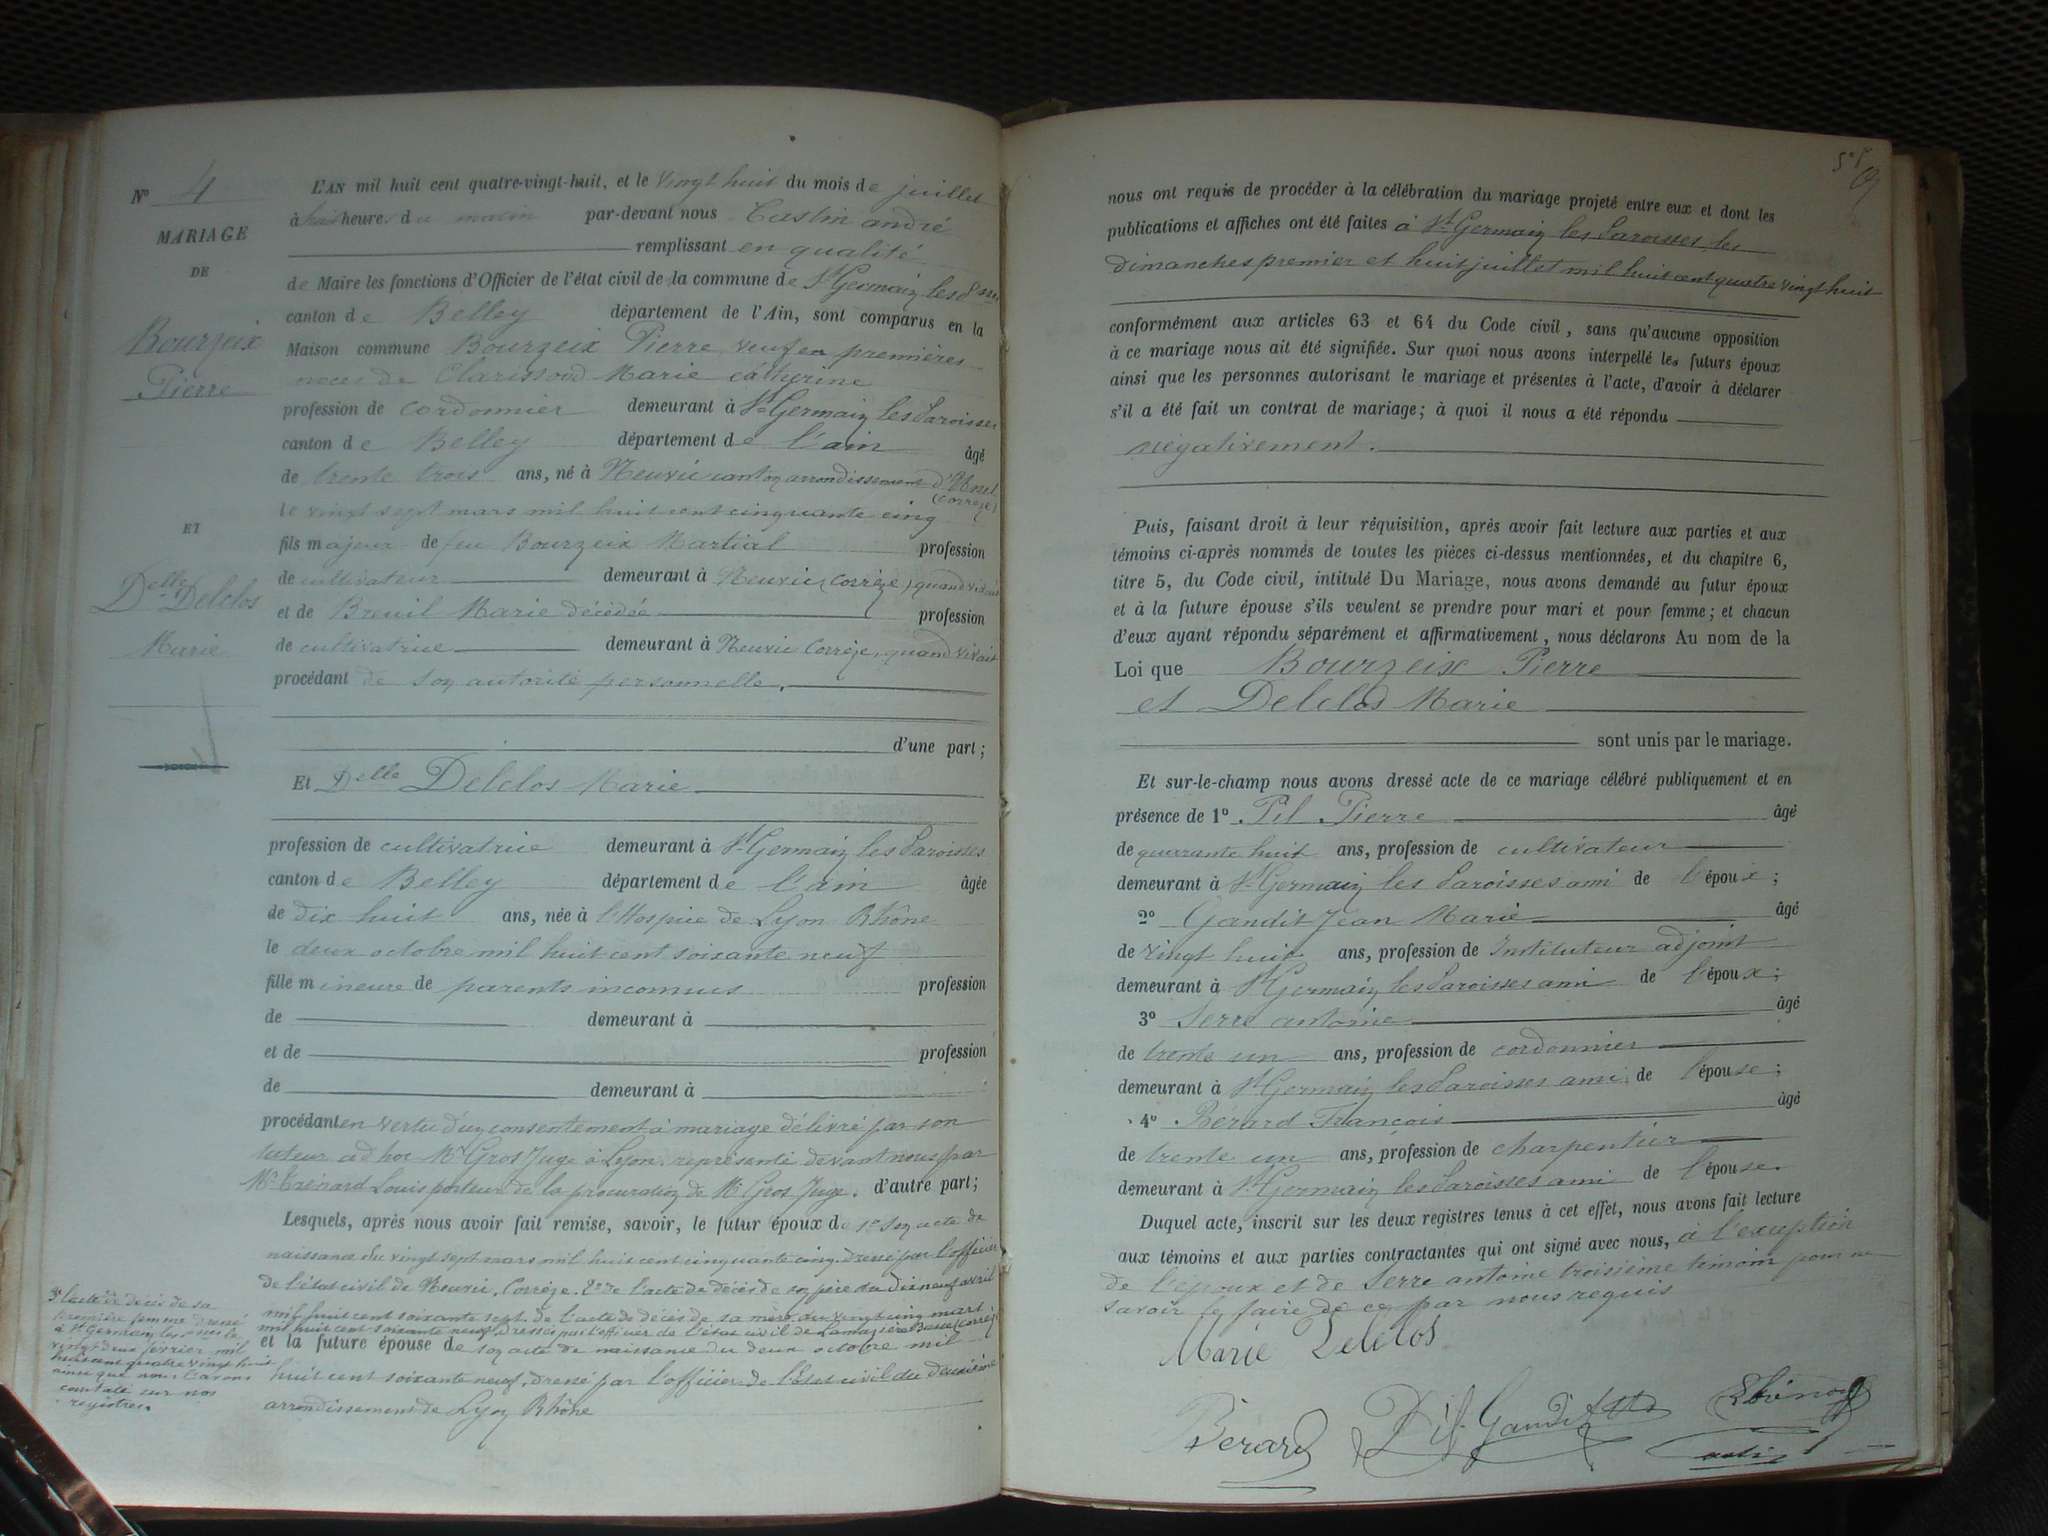 Nº 4
MARIAGE
DE
Bourzeix
Pierre
ET
Delle Delclos
Marie
L'AN mil huit cent quatre-vingt-huit, et le vingt huit du mois de juillet
à huit heures du matin par-devant nous Castin andré
remplissant en qualité
de Maire les fonctions d'Officier de l'état civil de la commune de St Germain les Pses
canton de Belley département de l'Ain, sont comparus en la
Maison commune Bourzeix Pierre veuf en premières
noces de Marie catherine
profession de cordonnier demeurant à St Germain les Paroisses
canton de Belley département de l'ain âgé
de trente trois ans, né à Neuvic canton arrondissement d'Ussel
(corrèze)
le vingt sept mars mil huit cent cinquante cinq
fils majeur de feu Bourzeix Martial profession
de cultivateur demeurant à Neuvic (Corrèze) quand vivait
et de Breuil Marie décédée profession
de cultivatrice demeurant à Neuvic Corrèze, quand vivait
procédant de son autorité personnelle.
d'une part;
Et Delle Delclos Marie
profession de cultivatrice demeurant à St Germain les Paroisses
canton de Belley département de l'ain âgée
de dix huit ans, née à l'Hospice de Lyon Rhône
le deux octobre mil huit cent soixante neuf
fille mineure de parents inconnus profession
de demeurant à
et de profession
de demeurant à
procédant en vertu d'un consentement à mariage délivré par son
tuteur ad hoc Mr Gros Juge à Lyon, représenté devant nous par
Mr Trénard Louis porteur de la procuration de Mr Gros Juge. d'autre part;
Lesquels, après nous avoir fait remise, savoir, le futur époux de 1º son acte de
naissance du vingt sept mars mil huit cent cinquante cinq dressé par l'officier
de l'état civil de Neuvic, Corrèze. 2º de l'acte de décès de son père du dix neuf avril
mil huit cent soixante sept de l'acte de décès de sa mère du vingt cinq mars
mil huit cent soixante neuf dressés par l'officier de l'état civil de Lamazière Basse (corrèze)
et la future épouse de son acte de naissance du deux octobre mil
huit cent soixante neuf, dressé par l'officier de l'état civil du deuxième
arrondissement de Lyon Rhône
3º l'acte de décès de sa
première femme dressé
à St Germain les Pses le
vingt deux février mil
huit cent quatre vingt huit
ainsi que nous l'avons
constaté sur nos
registres.
nous ont requis de procéder à la célébration du mariage projeté entre eux et dont les
publications et affiches ont été faites à St Germain les Paroisses les
dimanches premier et huit juillet mil huit cent quatre vingt huit
conformément aux articles 63 et 64 du Code civil, sans qu'aucune opposition
à ce mariage nous ait été signifiée. Sur quoi nous avons interpellé les futurs époux
ainsi que les personnes autorisant le mariage et présentes à l'acte, d'avoir à déclarer
s'il a été fait un contrat de mariage; à quoi il nous a été répondu
négativement.
Puis, faisant droit à leur réquisition, après avoir fait lecture aux parties et aux
témoins ci-après nommés de toutes les pièces ci-dessus mentionnées, et du chapitre 6,
titre 5, du Code civil, intitulé Du Mariage, nous avons demandé au futur époux
et à la future épouse s'ils veulent se prendre pour mari et pour femme; et chacun
d'eux ayant répondu séparément et affirmativement, nous déclarons Au nom de la
Loi que Bourzeix Pierre
et Delclos Marie
sont unis par le mariage.
Et sur-le-champ nous avons dressé acte de ce mariage célébré publiquement et en
présence de 1º Pil Pierre âgé
de quarante huit ans, profession de cultivateur
demeurant à St Germain les Paroisses ami de l'époux;
2º Gandit Jean Marie âgé
de vingt huit ans, profession de Instituteur adjoint
demeurant à St Germain les Paroisses ami de l'époux;
3º Serre antoine âgé
de trente un ans, profession de cordonnier
demeurant à St Germain les Paroisses ami de l'épouse;
4º Bérard François âgé
de trente un ans, profession de charpentier
demeurant à St Germain les Paroisses ami de l'épouse.
Duquel acte, inscrit sur les deux registres tenus à cet effet, nous avons fait lecture
aux témoins et aux parties contractantes qui ont signé avec nous, à l'exception
de l'époux et de Serre antoine troisième témoin pour ne
savoir le faire de ce par nous requis
Marie Delclos
Bérard Pil Gandit